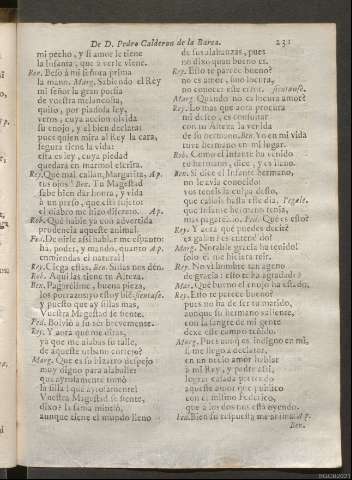 De D. Pedro Calderon de la Barca. 231
mi pecho, y si amor le tiene
la Infanta, que à verle viene.
Ben. Besò à mi señora prima
la mano. Marg. Sabiendo el Rey
mi señor la gran
de vuestra melancolia,
quiso, por piadosa ley,
veros, cuya accion olvida
su enojo, y al bien declara;
pues quien mira al Rey la cara,
segura tiene la vida:
esta es ley, cuya piedad
quedara en marmol escrita.
Rey. Què mal callan, Margarita, Ap.
tus ojos! Ben. Tu Magestad
sabe bien dàr honra, y vida
à un preso, que esta sujeto
el diablo me hizo discreto. Ap.
Rob. Què hable ya con advertida
prudencia aqueste animal.
Fed. De oirle assi hablar me espanto:
ha, poder, y mando, quanto Ap.
enmiendas el natural!
Rey. Ciega estas. Ben. Sillas nos dèn.
Rob. Aqui las tiene tu Alteza.
Ben. Pagarèlme, buena pieza,
los porrazos; yo estoy bien, sientase.
y puesto que ay sillas mas,
Vuestra Magestad se siente.
Fed. Bolviò à su ser brevemente.
Rey. Y aora què me diràs,
ya que me alabas su talle,
de aqueste urbano cortejo?
Marg. Que es su bizarro despejo
muy digno para alaballe:
que ayrosamente tomò
la silla! què ayrosamente!
Vuestra Magestad se siente,
dixo! la fama mintiò,
aunque tiene el mundo lleno
de sus alabanzas, pues
no dixo quan bueno es.
Rey. Esto te parece bueno?
no es amor, sino locura,
no conocer este error. sientanse.
Marg. Quando no es locura amor?
Rey. Lo mas que aora procura
mi deseo, es consultar
con tu Alteza la venida
de su hermano. Ben. Yo en mi vida
tuve hermano en mi lugar.
Rob. Como el Infante ha venido
tu hermano, dice, y es llano.
Ben. Si dice el Infante hermano,
no le avia conocido:
vos teneis la culpa desto,
que callais hasta este dia, Pegale.
que Infante hermano tenia,
mas pagareislo. Fed. Què es esto?
Rey. Y aora què puedes decir?
es galan? es entendido?
Marg. Notable gracia ha tenido!
solo èl me hiciera reir.
Rey. No vì hombre tan ageno
de gracia: esto te ha agradado?
Mar. Què bueno el enojo ha estado,
Rey. Esto te parece bueno?
pues no ha de ser tu marido,
aunque su hermano saliente,
con la sangre de mi gente
dexe este campo teñido.
Marg. Pues aunque es indigno en mi,
si me llego à declarar,
en un necio amor hablar
à mi Rey, y padre assi;
lograr casada pretendo
aqueste amor que publico
con el mismo Federico,
que à los dos nos està oyendo.
Fed. Bien su respuesta me anima. Ap.
Ben.